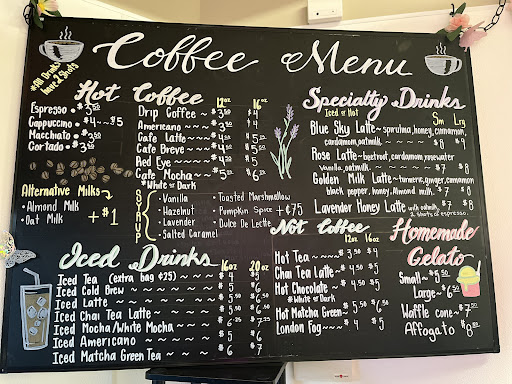 Coffee Menu
*All Drinks have 2 Shots
Hot Coffee
Espresso • $3.50
Cappuccino • $4 ~~ $5
Macchiato • $3
Cortado • $3.50
12oz 16oz
Drip Coffee ~ $3.50 $4
Americano ~~ $3.50 $4
Cafe Latte ~~ $4
Cafe Breve ~~ $4.50
Red Eye ~~~~ $4.50
Cafe Mocha ~~ $5 $6
*White or Dark
Alternative Milks
• Almond Milk
• Oat Milk
+ $1
SYRUP
• Vanilla
• Hazelnut
• Lavender
• Salted Caramel
• Toasted Marshmallow
• Pumpkin Spice
• Dulce De Leche
+ ¢75
Iced Drinks
16oz 20oz
Iced Tea (extra bag ¢25) ~~~ $4 $5
Iced Cold Brew
Iced Latte
Iced Chai Tea Latte
Iced Mocha/White Mocha
Iced Americano
Iced Matcha Green Tea ~ ~ ~ $6 $7
Specialty Drinks
Iced or Hot
Sm Lrg
Blue Sky Latte ~ spirulina, honey, cinnamon,
cardamom, oat milk ~ ~ ~ ~ $8
Rose Latte ~ beetroot, cardamom, rosewater
Vanilla, oat milk ~ ~ ~ ~ $7 $8
Golden Milk Latte ~ turmeric, ginger, cinnamon,
black pepper, honey, Almond milk. $7 $8
Lavender Honey Latte with oat milk, $7 $8
2 shots of espresso.
Not Coffee
12oz 16oz
Hot Tea ~~~~ $3.50 $4
Chai Tea Latte ~ $4.50 $5
Hot Chocolate ~ $4.50 $5
*White or Dark
Hot Matcha Green ~ $5.50 $6.50
London Fog ~~~ $4 $5
Homemade Gelato
Small ~ $5.50
Large ~ $6.50
Waffle cone ~ $7.50
Affogato ~ $8.00